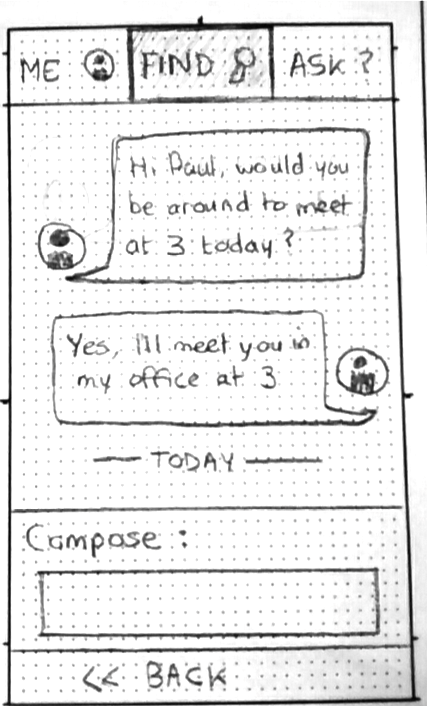 ME FIND ASK ?
Hi Paul, would you
be around to meet
at 3 today?
Yes, I'll meet you in
my office at 3
TODAY
Compose :
<< BACK